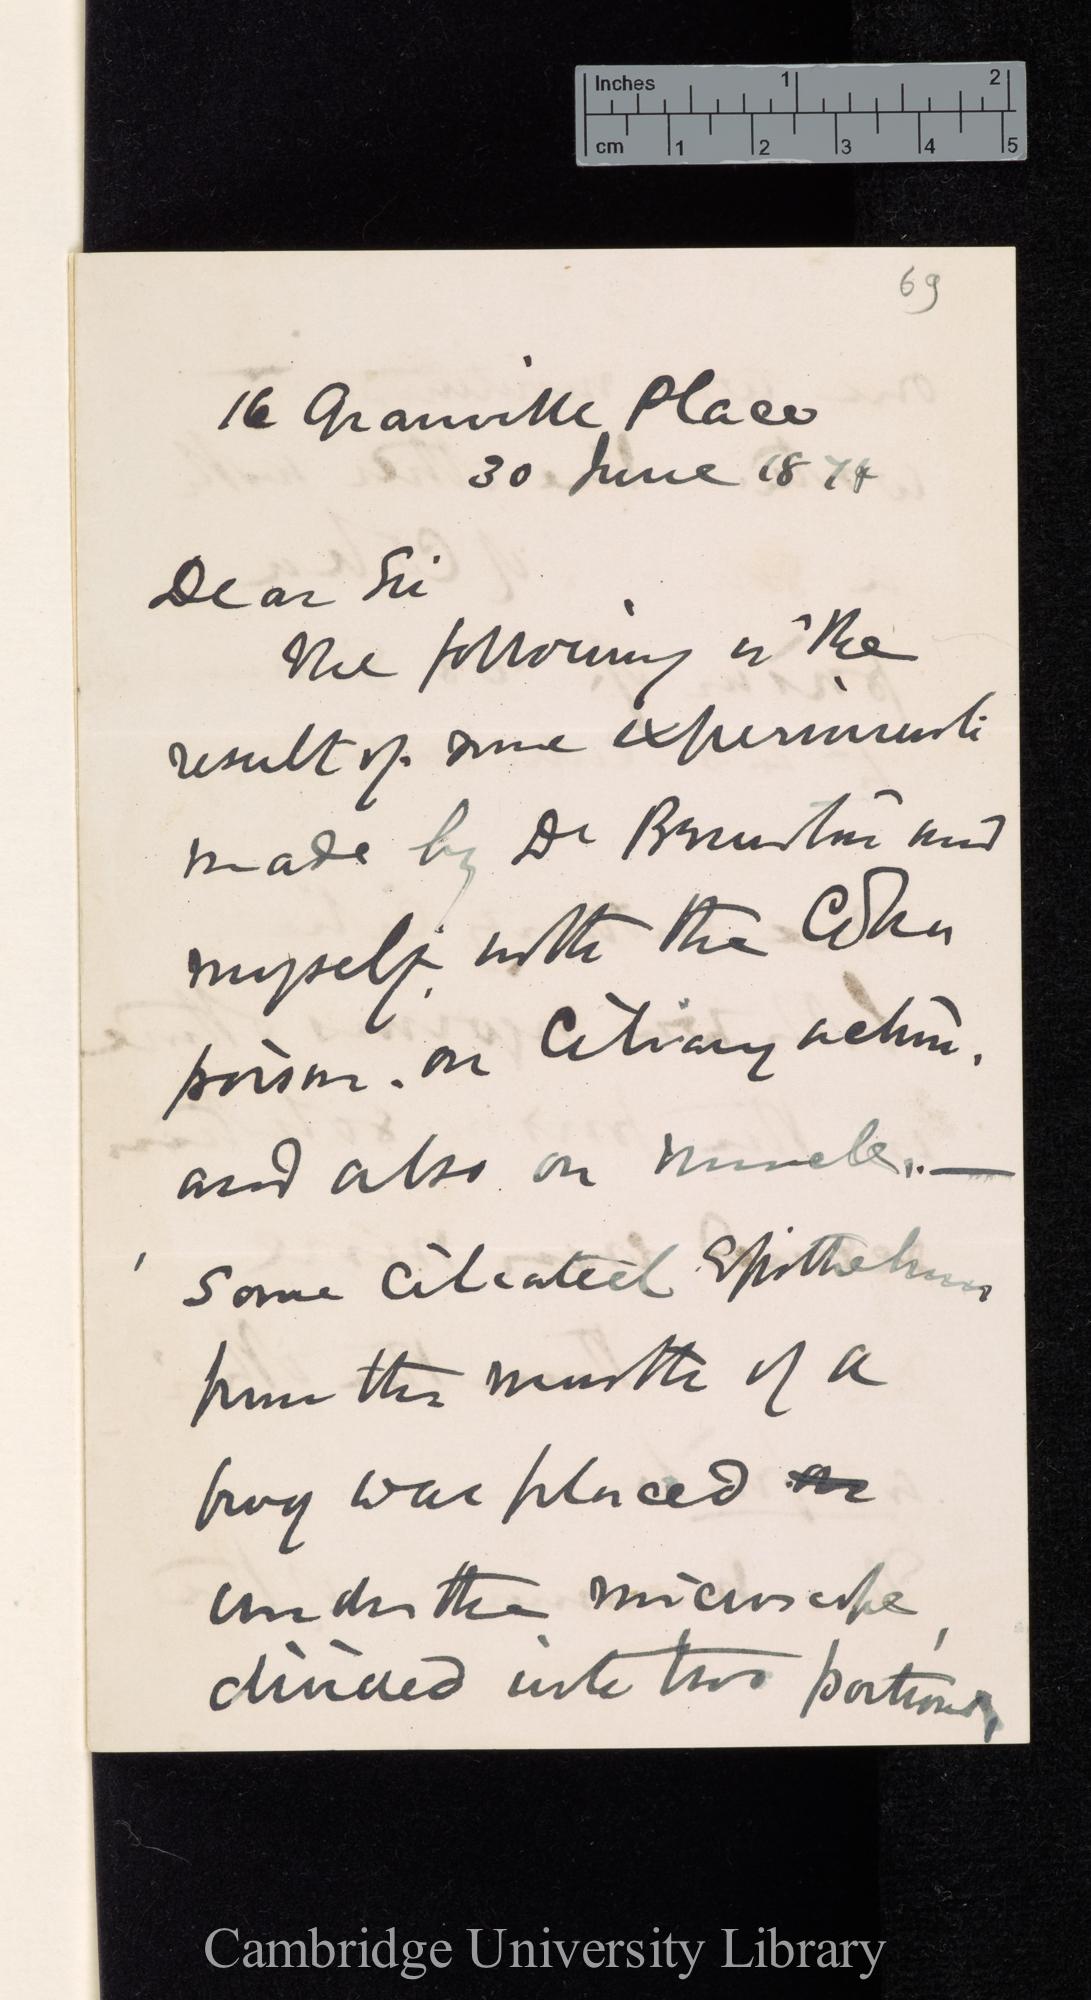 Inches 1 2
cm 1 2 3 4 5
69
16 Granville Place
30 June 1874
Dear Sir
The following is the
result of some experiments
made by Dr Brunton and
myself, with the Cobra
poison. on Ciliary action.
and also on muscle. —
Some Ciliated Epithelium
from the mouth of a
frog was placed
under the microscope,
divided into two portions,
Cambridge University Library